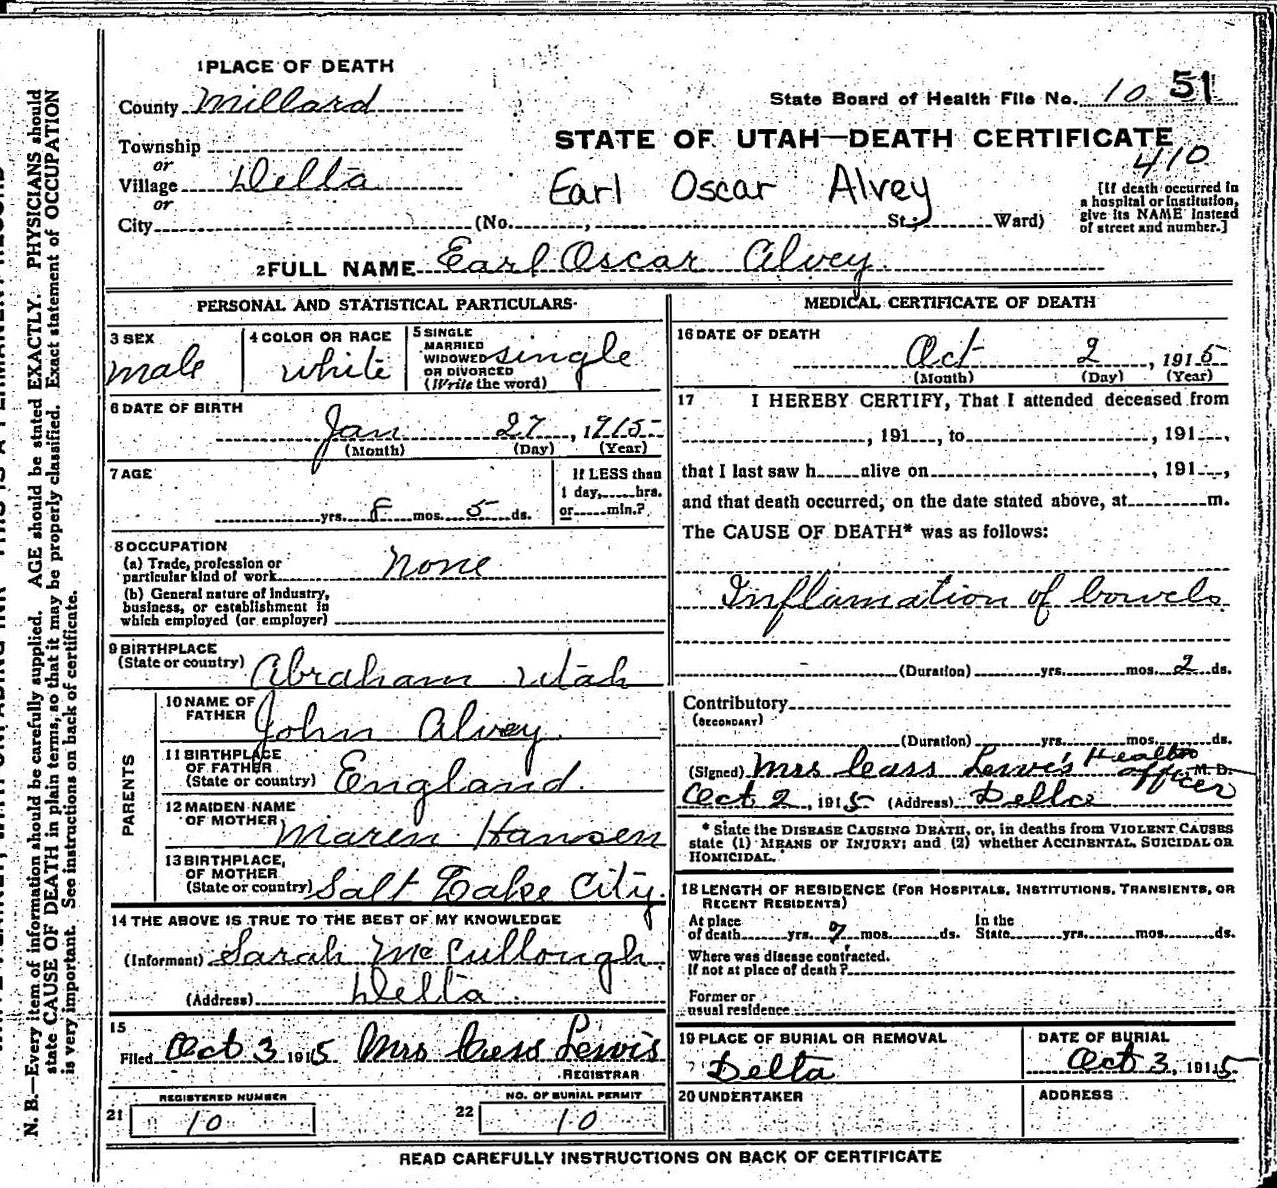 1 PLACE OF DEATH
County Millard
State Board of Health File No. 10 51
Township
or
Village Delta
or
City (No. , St; Ward)
STATE OF UTAH—DEATH CERTIFICATE
410
Earl Oscar Alvey
[If death occurred in
a hospital or institution,
give its NAME instead
of street and number.]
2 FULL NAME Earl Oscar Alvey
PERSONAL AND STATISTICAL PARTICULARS
3 SEX
male
4 COLOR OR RACE
white
5 SINGLE
MARRIED
WIDOWED
OR DIVORCED
(Write the word)
single
6 DATE OF BIRTH
Jan 27, 1915
(Month) (Day) (Year)
7 AGE
yrs. 8 mos. 5 ds.
If LESS than
1 day, hrs.
or min.?
8 OCCUPATION
(a) Trade, profession or
particular kind of work none
(b) General nature of industry,
business, or establishment in
which employed (or employer)
9 BIRTHPLACE
(State or country) Abraham Utah
PARENTS
10 NAME OF
FATHER John Alvey
11 BIRTHPLACE
OF FATHER
(State or country) England.
12 MAIDEN NAME
OF MOTHER Maren Hansen
13 BIRTHPLACE,
OF MOTHER
(State or country) Salt Lake City.
14 THE ABOVE IS TRUE TO THE BEST OF MY KNOWLEDGE
(Informant) Sarah McCullough.
(Address) Delta.
15
Filed Oct 3 1915 Mrs Cass Lewis
REGISTRAR
21 REGISTERED NUMBER
10
22 NO. OF BURIAL PERMIT
10
MEDICAL CERTIFICATE OF DEATH
16 DATE OF DEATH
Oct 2, 1915
(Month) (Day) (Year)
17 I HEREBY CERTIFY, That I attended deceased from
, 191 , to , 191 ,
that I last saw h alive on , 191 ,
and that death occurred, on the date stated above, at m.
The CAUSE OF DEATH* was as follows:
Inflamation of bowels
(Duration) yrs. mos. 2 ds.
Contributory
(SECONDARY)
(Duration) yrs. mos. ds.
(Signed) Mrs Cass Lewis Health officer M. D.
Oct 2, 1915 (Address) Delta
* State the DISEASE CAUSING DEATH, or, in deaths from VIOLENT CAUSES
state (1) MEANS OF INJURY; and (2) whether ACCIDENTAL, SUICIDAL OR
HOMICIDAL.
18 LENGTH OF RESIDENCE (FOR HOSPITALS, INSTITUTIONS, TRANSIENTS, OR
RECENT RESIDENTS)
At place
of death yrs. 7 mos. ds.
In the
State yrs. mos. ds.
Where was disease contracted.
If not at place of death?
Former or
usual residence
19 PLACE OF BURIAL OR REMOVAL
Delta
DATE OF BURIAL
Oct 3, 1915
20 UNDERTAKER
ADDRESS
READ CAREFULLY INSTRUCTIONS ON BACK OF CERTIFICATE
N. B.—Every item of information should be carefully supplied. AGE should be stated EXACTLY. PHYSICIANS should
state CAUSE OF DEATH in plain terms, so that it may be properly classified. Exact statement of OCCUPATION
is very important. See instructions on back of certificate.